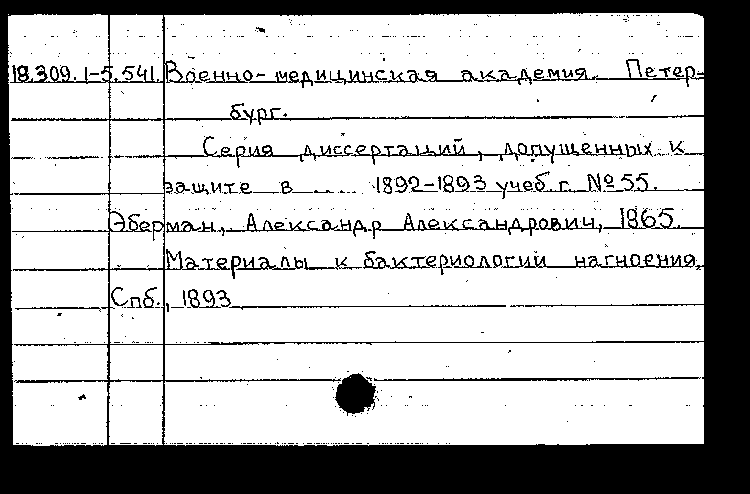 18.309.1-5.541. Военно-медицинская академия. Петер-
бург.
Серия диссертаций, допущенных к
защите в .... 1892-1893 учеб. г. №55.
Эберман, Александр Александрович, 1865.
Материалы к бактериологии нагноения.
Спб., 1893